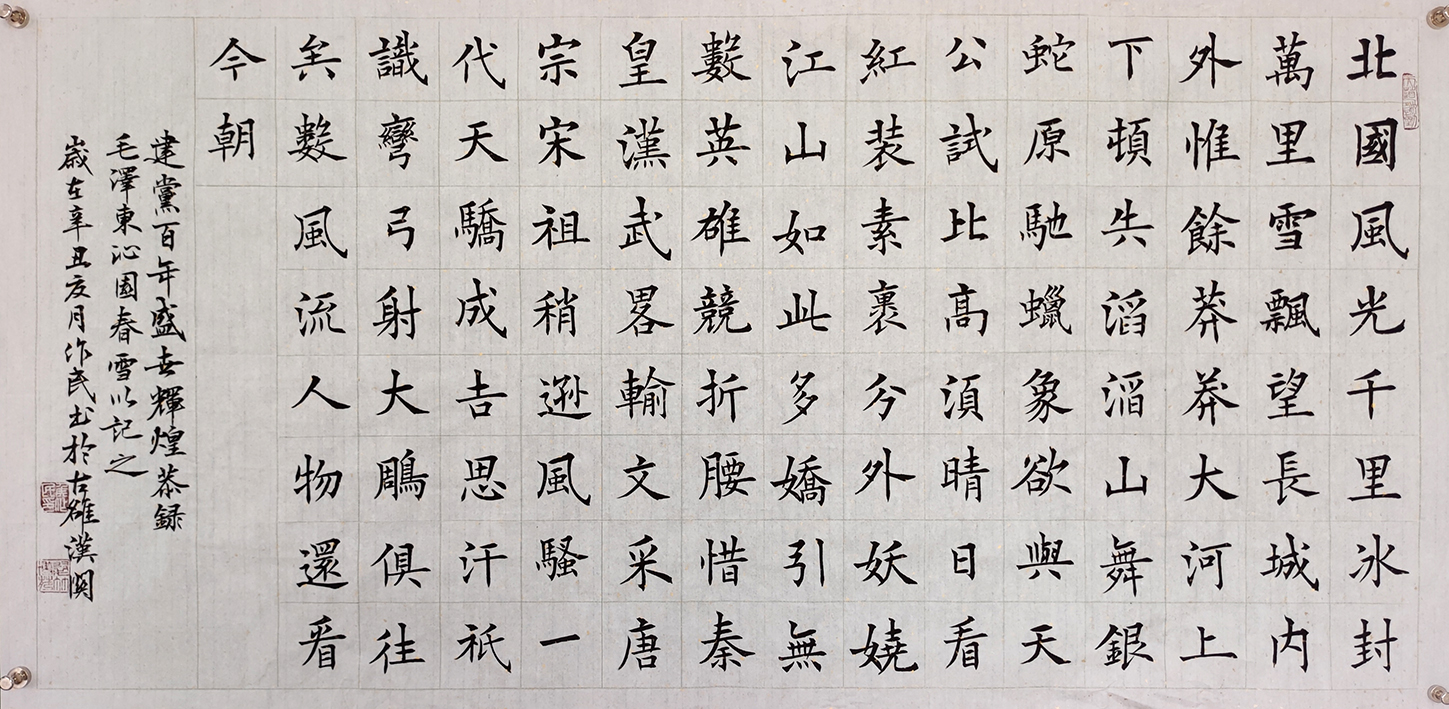 北國風光千里冰封
萬里雪飄望長城内
外惟餘莽莽大河上
下頓失滔滔山舞銀
蛇原馳蠟象欲與天
公試比髙湏晴日看
紅装素裹分外妖嬈
江山如此多嬌引無
數英雄競折腰惜秦
皇漢武畧輸文采唐
宗宋祖稍遜風騷一
代天驕成吉思汗祇
識彎弓射大鵰俱往
矣數風流人物還看
今朝
建黨百年盛世輝煌恭録
毛澤東沁園春雪以記之
歲在辛丑夏月作民书於古雒漢関